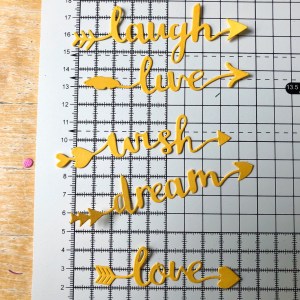 laugh
live
wish
dream
love
16
15
14
13
12
11
10
9
8
7
6
5
4
3
2
13.5